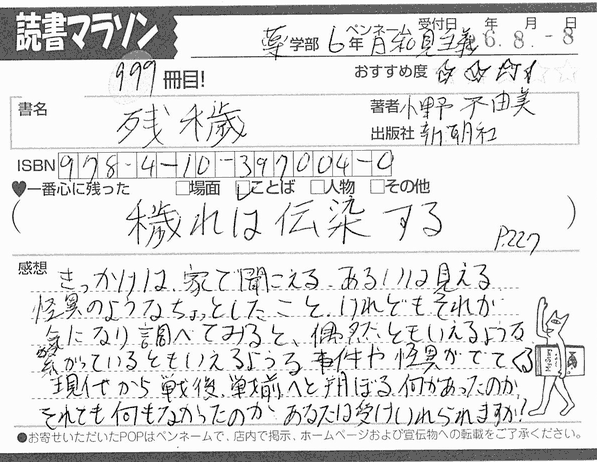 読書マラソン
薬学部 6年 ペンネーム 月和見主義 受付日 年 月 日 6.8.-8
999冊目! おすすめ度 ☆☆☆☆☆
書名 残穢 著者 小野不由美
出版社 新潮社
ISBN 978-4-10-397004-0
♥一番心に残った □場面 □ことば □人物 □その他
(穢れは伝染する P.227)
感想
きっかけは、家で聞こえる、あるいは見える
怪異のようなちょっとしたこと、けれどもそれが
気になり調べてみると、偶然ともいえるような
繋がっているともいえるような事件や怪異がでてくる
現代から戦後、戦前へと遡ぼる、何があったのか
それても何もなかったのか あなたは受けいれられますか?
●お寄せいただいたPOPはペンネームで、店内で掲示、ホームページおよび宣伝物への転載をご了承ください。